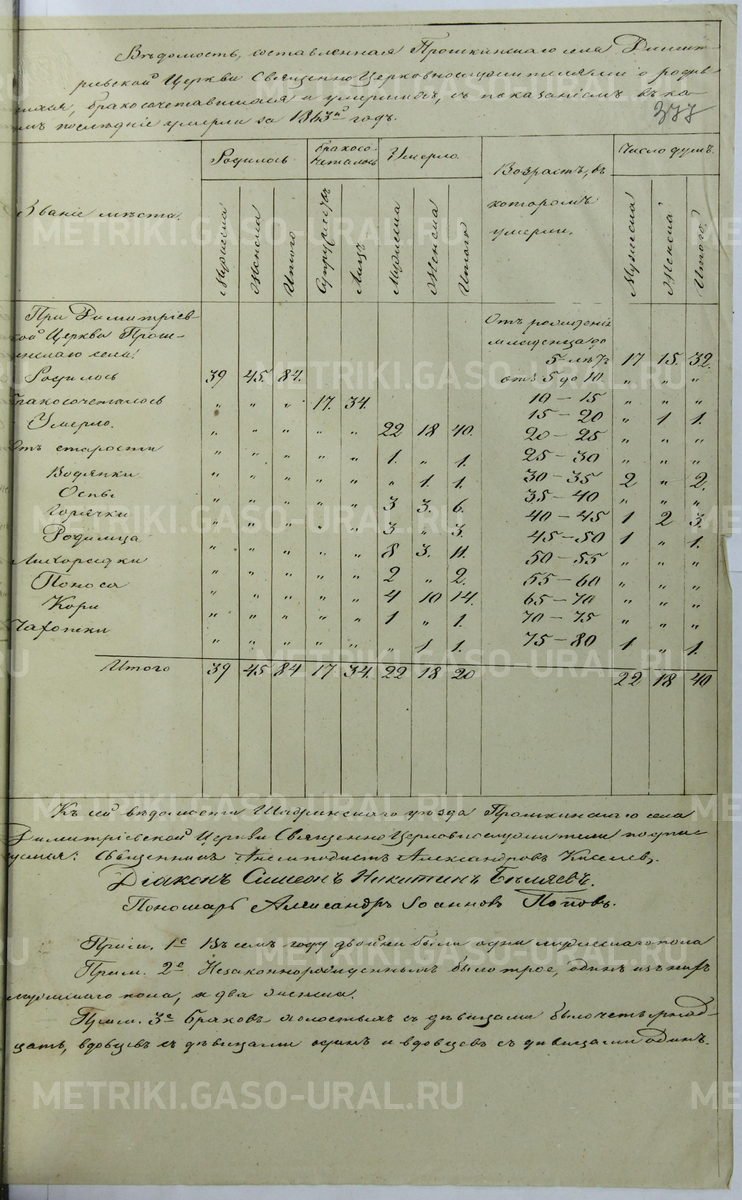 Вѣдомость, составленная Прошкинскаго села Димит-
ріевской Церкви Священно Церковнослужителями о родив-
шихся, бракосочетавшихся и умершихъ, съ показаніемъ въ ка-
последніе умерли за 1843й годъ.
377
Званіе мѣста.
Родилось
Бракосо-
четалось
Умерло.
Возрастъ, въ
которомъ
умерли.
Число душъ.
Мужеска
Женска
Итого
Супружествъ
Лицъ
Мужеска
Женска
Итого
Мужеска
Женска
Итого
При Димитріев-
ской Церкви Прош-
кинскаго села:
Отъ рожденія
младенца до
5 лѣтъ 17 15. 32.
Родилось 39 45. 84. отъ 5 до 10. „ „ „
Бракосочеталось „ „ „ 17. 34. 10 – 15 „ „ „
Умерло. „ „ „ „ „ 22 18 40. 15 – 20 „ 1 1.
Отъ старости „ „ „ „ „ 1. „ 1. 20 – 25 „ „ „
Водянки „ „ „ „ „ „ 1. 1. 25 – 30 „ „ „
Оспы „ „ „ „ „ 3 3. 6. 30 – 35 2 „ 2.
Горячки „ „ „ „ „ 3 „ 3. 35 – 40 „ „ „
Родимца „ „ „ „ „ 8 3. 11. 40 – 45 1 2 3.
Лихорадки „ „ „ „ „ 2 „ 2. 45 – 50 1 „ 1.
Поноса „ „ „ „ „ 4 10 14. 50 – 55 „ „ „
Кори „ „ „ „ „ 1 „ 1. 55 – 60 „ „ „
65 – 70 „ „ „
70 – 75 „ „ „
Чахотки „ „ „ „ „ „ 1 1. 75 – 80 1 „ 1.
Итого 39 45 84 17 34. 22 18 20 22 18 40
Къ сей вѣдомости Шадринскаго уѣзда Прошкинскаго села
Димитріевской Церкви Священно Церковнослужители подпис
Священникъ Александровъ Киселев,
Діаконъ Симеонъ Никитинъ Бѣляевъ.
Пономарь Александръ Іоанновъ Поповъ.
Прим. 1е Въ семъ году двойни были одни мужескаго пола
Прим. 2е Незаконнорожденныхъ было трое, одинъ изъ нихъ
мужескаго пола, и два женска.
Прим. 3е Браковъ холостыхъ съ дѣвицами было четырнад-
цать, вдовцевъ съ дѣвицами одинъ и вдовцевъ съ дѣвицами одинъ.
METRIKI.GASO-URAL.RU